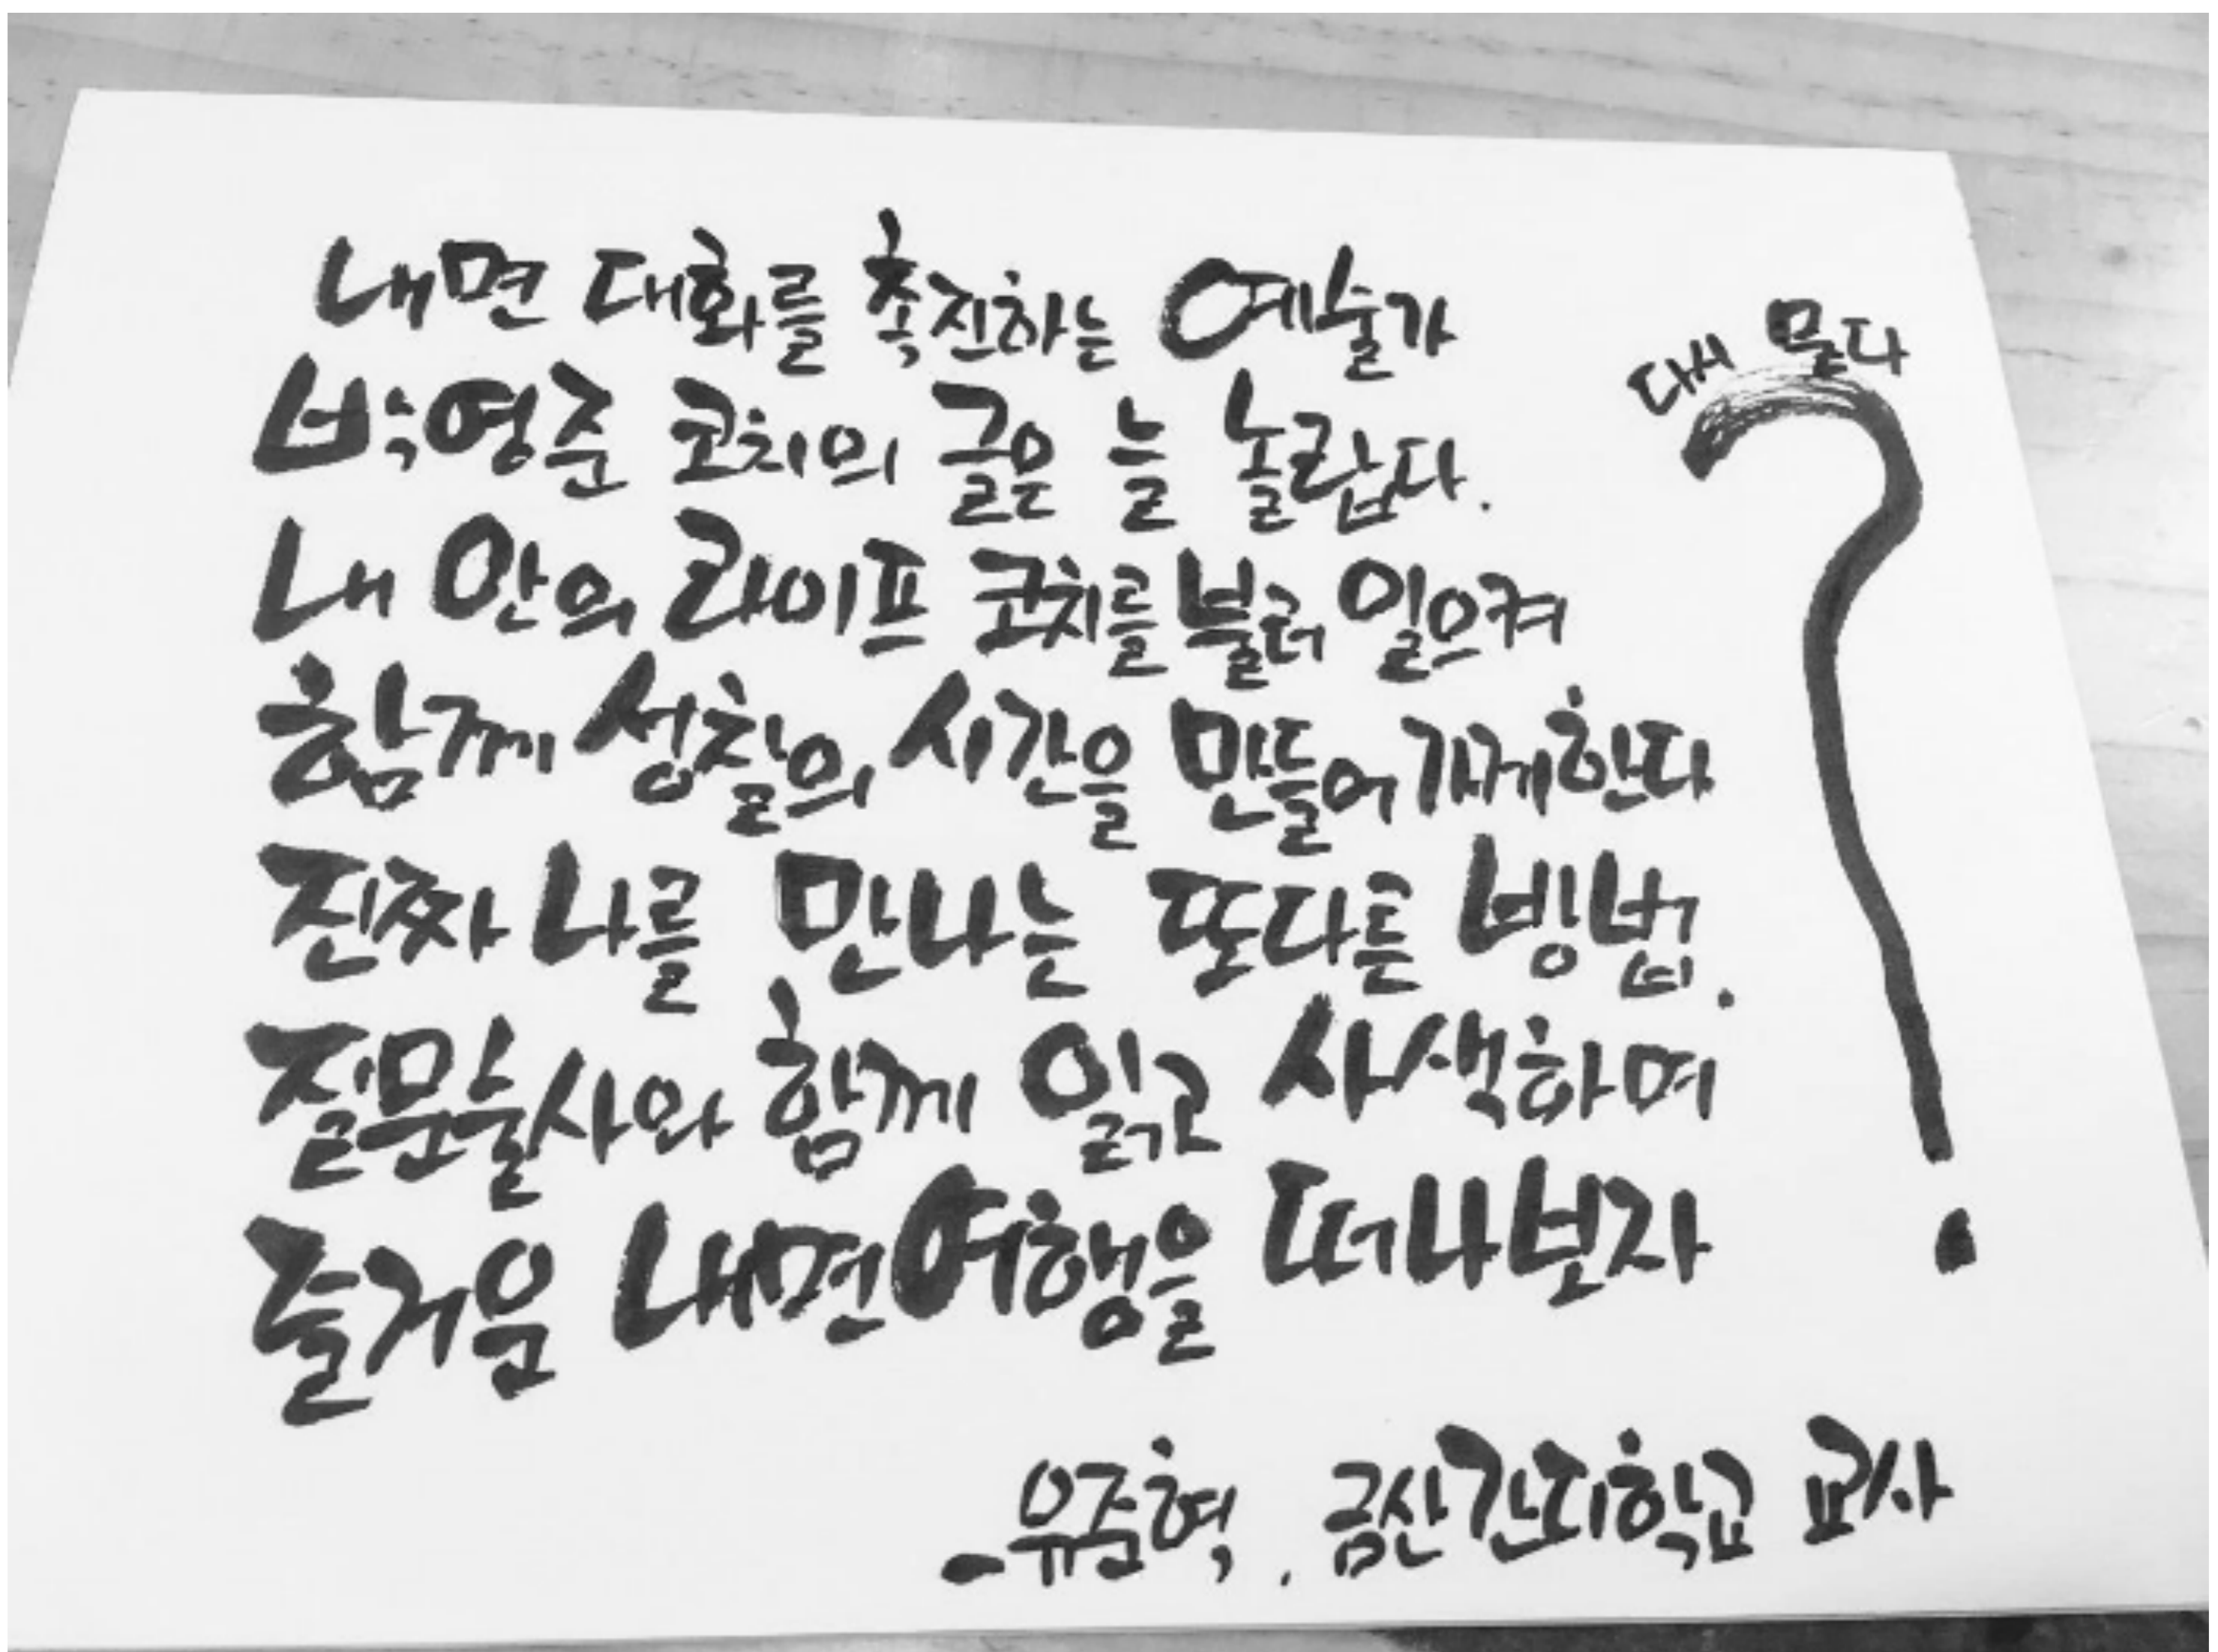 내면 대화를 촉진하는 예술가
박영준 코치의 글은 늘 놀랍다.
내 안의 라이프 코치를 불러 일으켜
함께 성찰의 시간을 만들어 가게한다
진짜 나를 만나는 또다른 방법.
질문술사와 함께 읽고 사색하며
즐거운 내면여행을 떠나보자
-유준혁, 금산간디학교 교사
다시 묻다
?